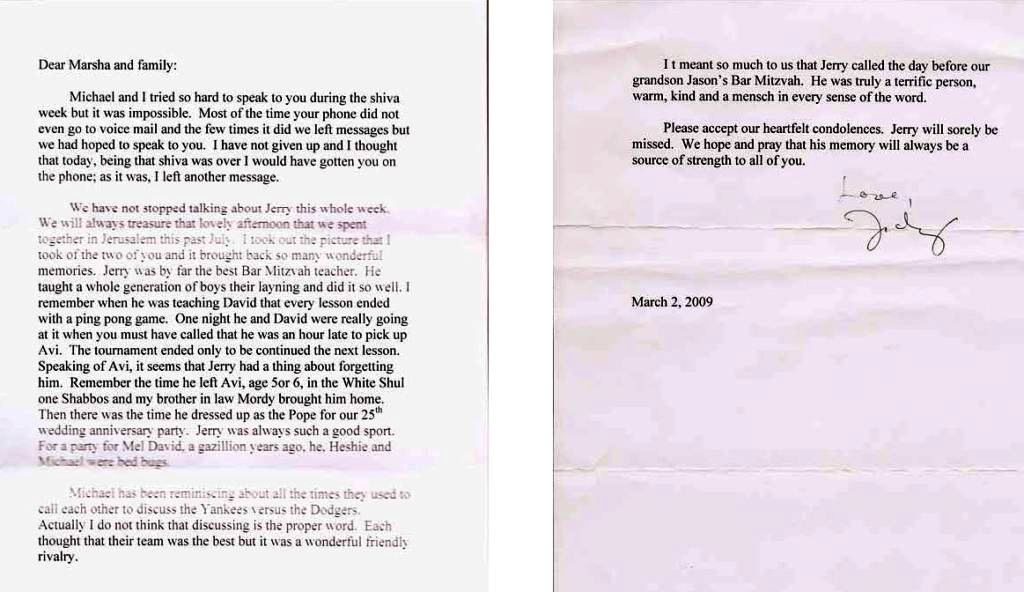 Dear Marsha and family:
Michael and I tried so hard to speak to you during the shiva
week but it was impossible.  Most of the time your phone did not
even go to voice mail and the few times it did we left messages but
we had hoped to speak to you.  I have not given up and I thought
that today, being that shiva was over I would have gotten you on
the phone; as it was, I left another message.
We have not stopped talking about Jerry this whole week.
We will always treasure that lovely afternoon that we spent
together in Jerusalem this past July.  I took out the picture that I
took of the two of you and it brought back so many wonderful
memories.  Jerry was by far the best Bar Mitzvah teacher.  He
taught a whole generation of boys their layning and did it so well. I
remember when he was teaching David that every lesson ended
with a ping pong game.  One night he and David were really going
at it when you must have called that he was an hour late to pick up
Avi.  The tournament ended only to be continued the next lesson.
Speaking of Avi, it seems that Jerry had a thing about forgetting
him.  Remember the time he left Avi, age 5or 6, in the White Shul
one Shabbos and my brother in law Mordy brought him home.
Then there was the time he dressed up as the Pope for our 25th
wedding anniversary party.  Jerry was always such a good sport.
For a party for Mel David, a gazillion years ago, he, Heshie and
Michael were bed bugs.
Michael has been reminiscing about all the times they used to
call each other to discuss the Yankees versus the Dodgers.
Actually I do not think that discussing is the proper word.  Each
thought that their team was the best but it was a wonderful friendly
rivalry.
I t meant so much to us that Jerry called the day before our
grandson Jason's Bar Mitzvah.  He was truly a terrific person,
warm, kind and a mensch in every sense of the word.
Please accept our heartfelt condolences.  Jerry will sorely be
missed.  We hope and pray that his memory will always be a
source of strength to all of you.
Love,
Judy
March 2, 2009